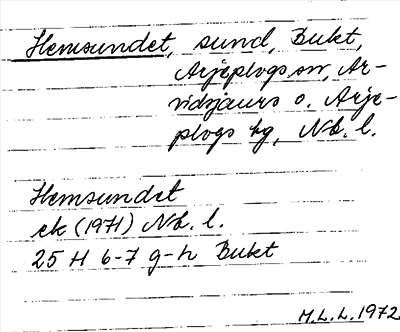 Hemsundet, sund, Bukt,
Arjeplogs sn, Ar-
vidsjaurs o. Arje-
plogs tg, Nb. l.
Hemsundet
ek (1971) Nb. l.
25 H 6-7 g-h Bukt
M.L.L. 1972